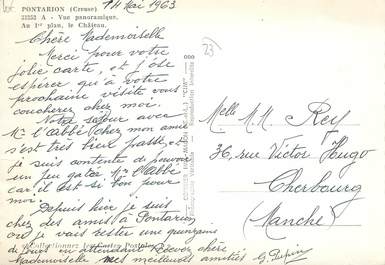 PONTARION (Creuse)
33253 A - Vue panoramique.
Au 1er plan, le Château.
14 Mai 1963
23
Chère Mademoiselle
Merci pour votre
jolie carte, et j'ose
espérer qu'à votre
prochaine visite vous
coucherez chez moi.
Notre séjour avec
Mr l'Abbé chez mon amie
s'est très bien passé, et
je suis contente de pouvoir
un peu gâter Mr l'Abbé
car il est si bon pour
moi.
Depuis hier je suis
chez des amis à Pontarion
où je vais rester une quinzaine
de jours en attendant Recevez chère
Mademoiselle mes meilleures amitiés
Collectionnez les Cartes Postales
Melle M. M. Rey
36, rue Victor Hugo
Cherbourg
(Manche)